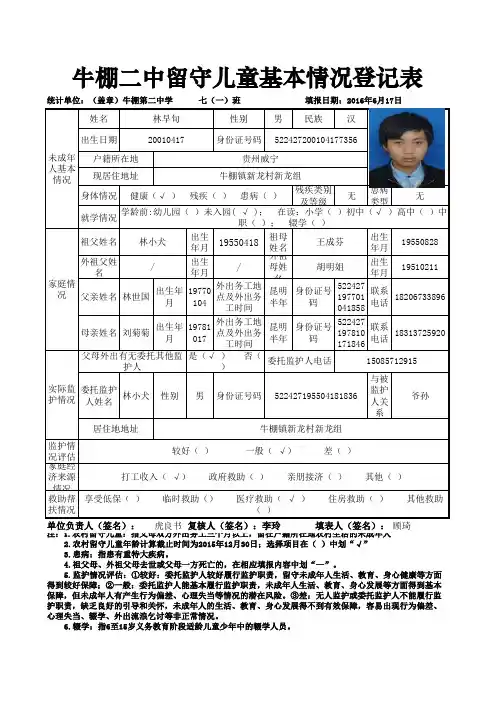 牛棚二中留守儿童基本情况登记表
统计单位：（盖章）牛棚第二中学 七（一）班 填报日期：2015年6月17日
未成年人基本情况
姓名 林早旬 性别 男 民族 汉
出生日期 20010417 身份证号码 522427200104177356
户籍所在地 贵州威宁
现居住地 牛棚镇新龙村新龙组
身体情况 健康（√） 残疾（ ） 患病（ ） 残疾类别及等级 无 患病类型 无
就学情况 学龄前:幼儿园（ ）未入园( √ )； 在读：小学（ ）初中（√ ）高中（ ）中职（ ）； 辍学（ ）
家庭情况
祖父姓名 林小犬 出生年月 19550418 祖母姓名 王成芬 出生年月 19550828
外祖父姓名 / 出生年月 / 外祖母姓名 胡明姐 出生年月 19510211
父亲姓名 林世国 出生年月 19770104 外出务工地点及外出务工时间 昆明半年 身份证号码 522427197701041858 联系电话 18206733896
母亲姓名 刘菊菊 出生年月 19781017 外出务工地点及外出务工时间 昆明半年 身份证号码 522427197810171846 联系电话 18313725920
实际监护情况
父母外出有无委托其他监护人 是（√ ） 否（ ） 委托监护人电话 15085712915
委托监护人姓名 林小犬 性别 男 身份证号码 522427195504181836 与被监护人关系 爷孙
居住地地址 牛棚镇新龙村新龙组
监护情况评估 较好（ ） 一般（ √） 差（ ）
家庭经济来源情况 打工收入（ √） 政府救助（ ） 亲朋接济（ ） 其他（ ）
救助帮扶情况 享受低保（ ） 临时救助（） 医疗救助（ √ ） 住房救助（ ） 其他救助（ ）
单位负责人（签名）： 虎良书 复核人（签名）：李玲 填表人（签名）： 顾琦
注：1.农村留守儿童：指父母双方外出务工三个月以上，留在户籍所在地农村生活的未成年人
2.农村留守儿童年龄计算截止时间为2015年12月30日；选择项目在（ ）中划“√”
3.患病：指患有重特大疾病。
4.祖父母、外祖父母去世或父母一方死亡的，在相应填报内容中划“—”。
5.监护情况评估：①较好：委托监护人较好履行监护职责，留守未成年人生活、教育、身心健康等方面
得到较好保障；②一般：委托监护人能基本履行监护职责，未成年人生活、教育、身心发展等方面得到基本
保障，但未成年人有产生行为偏差、心理失当等情况的潜在风险。③差：无人监护或委托监护人不能履行监
护职责，缺乏良好的引导和关怀，未成年人的生活、教育、身心发展得不到有效保障，容易出现行为偏差、
心理失当、辍学、外出流浪乞讨等非正常情况。
6.辍学：指6至15岁义务教育阶段适龄儿童少年中的辍学人员。